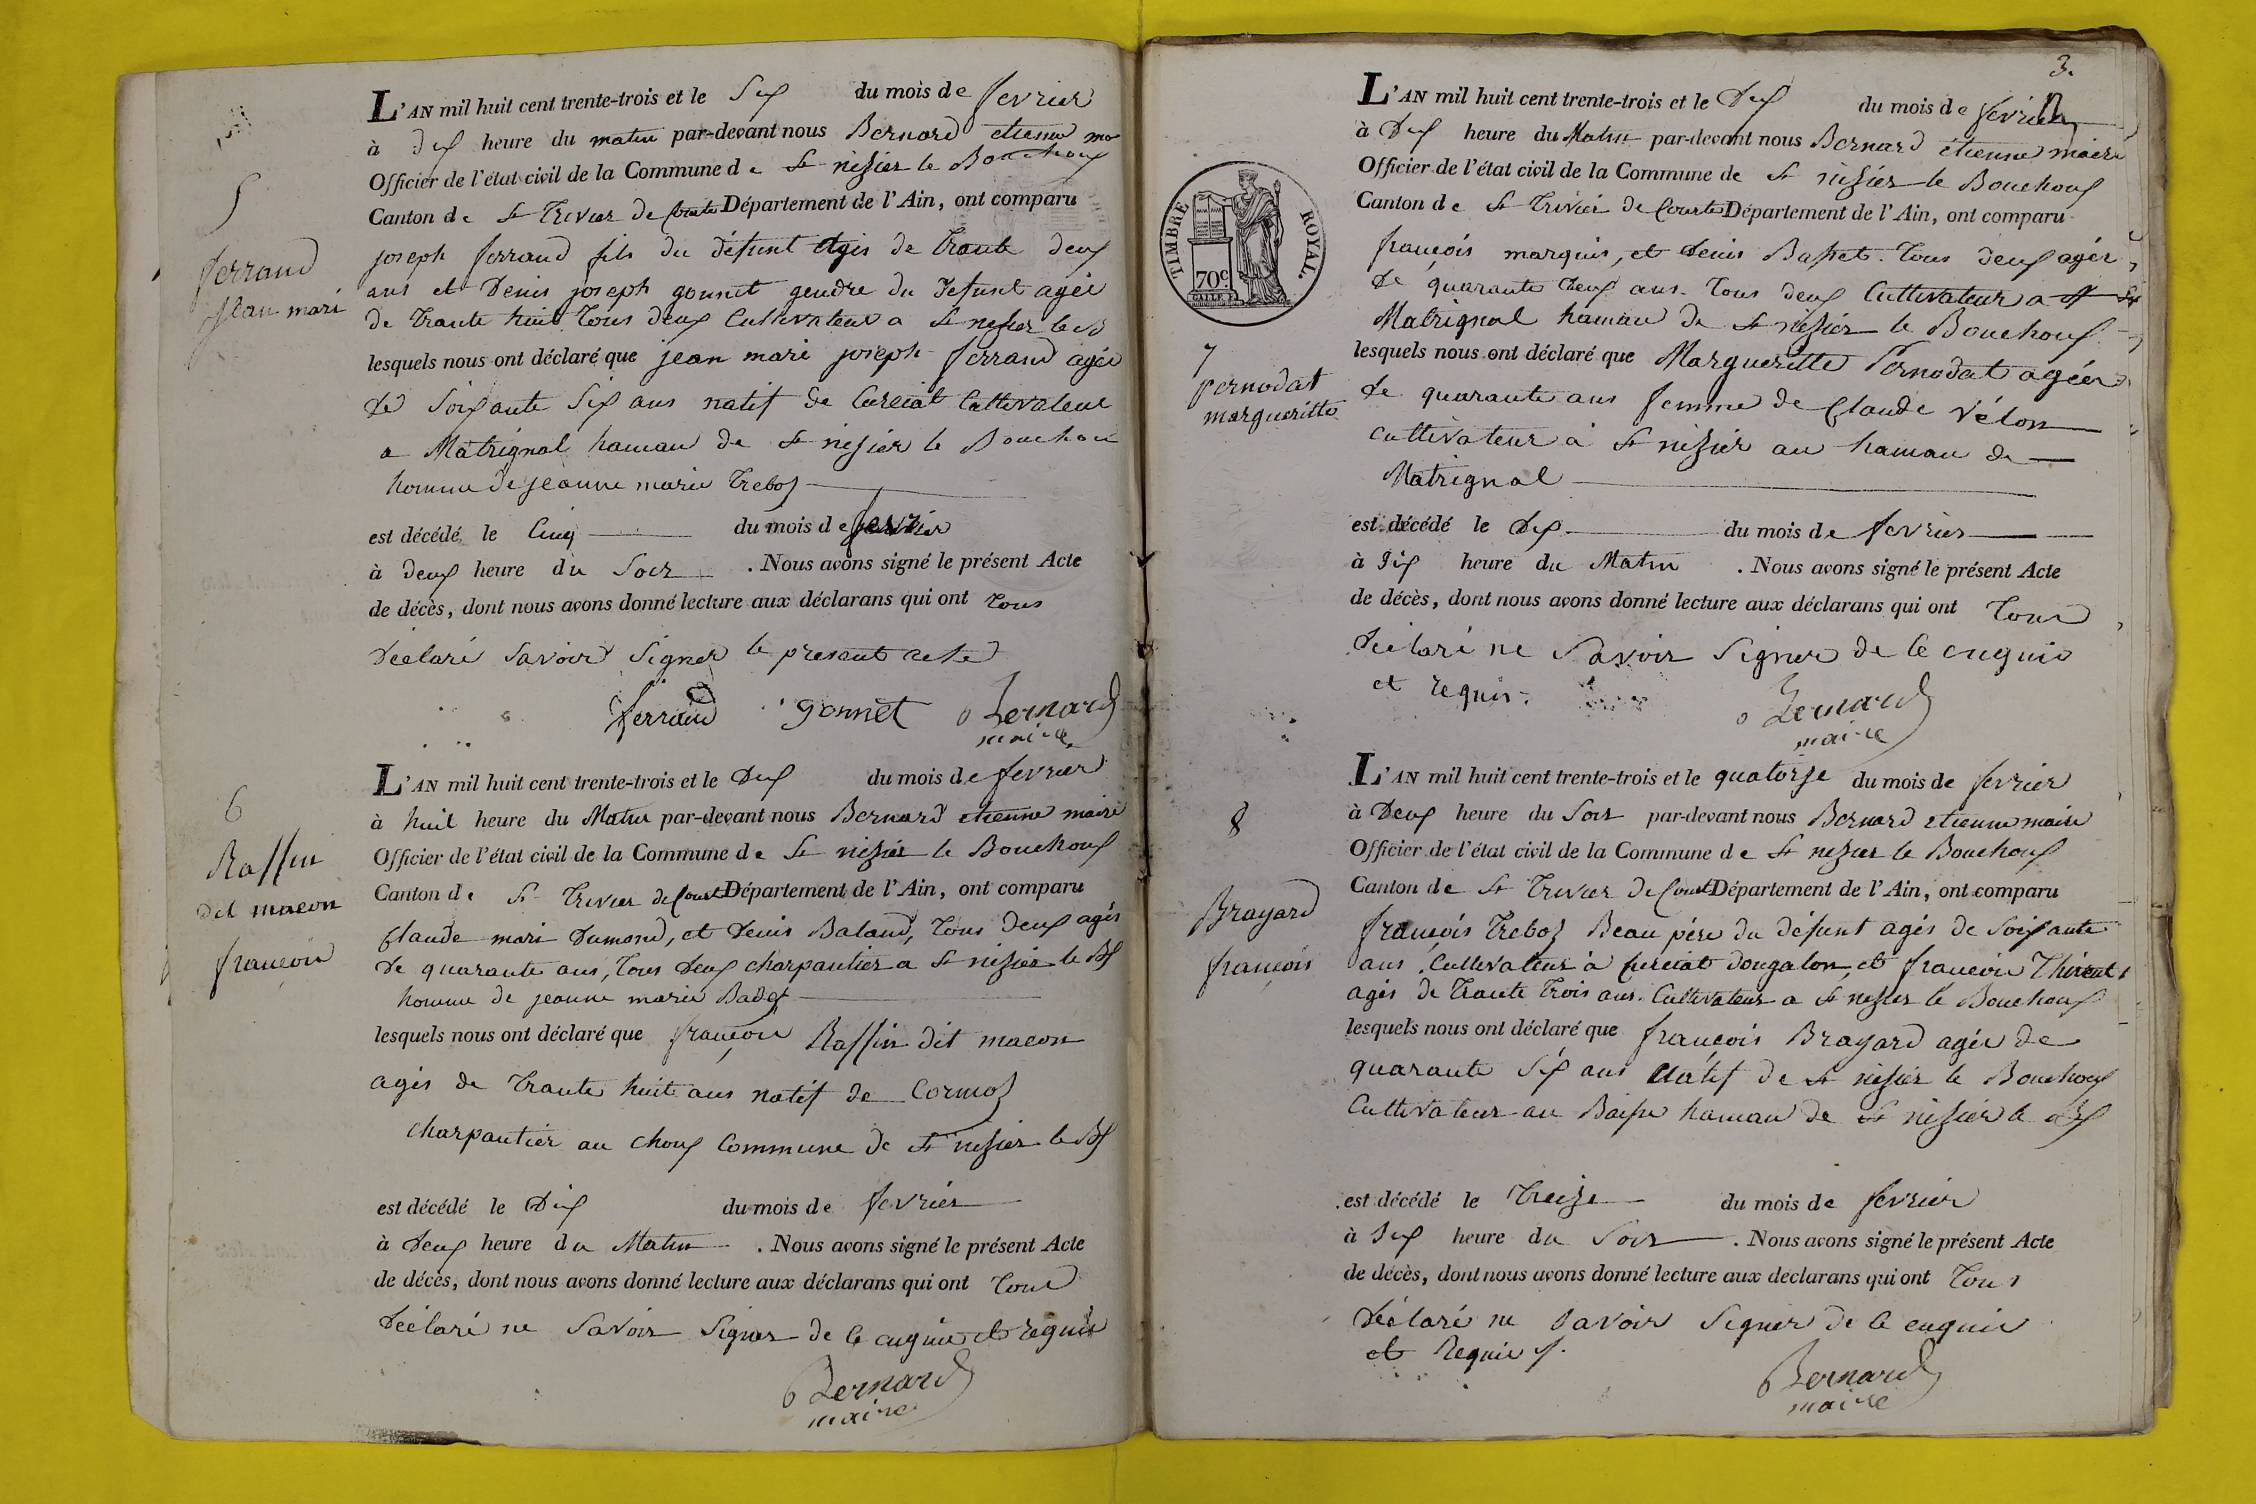 5
ferrand
jean mari
L'AN mil huit cent trente-trois et le Six du mois de fevrier
à dix heure du matin par-devant nous Bernard etienne ma
Officier de l'état civil de la Commune de St nisier le Bouchoux
Canton de St Trivier de Courtes Département de l'Ain, ont comparu
joseph ferrand fils du défunt agis de trante deux
ans et Denis joseph gonnet gendre du defunt agée
de trante huit tous deux Cultivateur a St nisier le B
lesquels nous ont déclaré que jean mari joseph ferrand agée
de Soixante Six ans natif de Curciat Cultivateur
a Matrignal hamau de St nisier le Bouchou
homme de jeanne marie Treboz
est décédé le Cinq du mois de fevrier
à deux heure du Soir . Nous avons signé le présent Acte
de décès, dont nous avons donné lecture aux déclarans qui ont tous
déclaré savoir signer le present acte
ferrand gonnet Bernard
maire
6
Raffin
dit macon
françois
L'AN mil huit cent trente-trois et le Dix du mois de fevrier
à huit heure du Matin par-devant nous Bernard etienne maire
Officier de l'état civil de la Commune de St nisier le Bouchoux
Canton de St Trivier de Court Département de l'Ain, ont comparu
Claude mari Dumond, et Denis Baland, tous deux agés
de quarante ans, tous deux charpantier a St nisier le Bx
homme de jeanne marie Badet
lesquels nous ont déclaré que françois Raffin dit macon
agés de trante huit ans natif de Cormoz
charpantier au choux Commune de St nisier le Bx
est décédé le Dix du mois de fevrier
à Deux heure du Matin . Nous avons signé le présent Acte
de décès, dont nous avons donné lecture aux déclarans qui ont tous
déclaré ne Savoir Signer de ce enquis et requis
Bernard
maire
3.
TIMBRE ROYAL.
70c
7
pernodat
margueritte
L'AN mil huit cent trente-trois et le Dix du mois de fevrier
à Dix heure du Matin par-devant nous Bernard étienne maire
Officier de l'état civil de la Commune de St nisier le Bouchoux
Canton de St Trivier de Courtes Département de l'Ain, ont comparu
françois marquis, et Denis Basset. tous deux agér
de quarante deux ans. tous deux Cultivateur a
Matrignal hamau de St nisier le Bouchoux
lesquels nous ont déclaré que Margueritte Pernodat agée
de quarante ans femme de Claude Vélon
cultivateur à St nisier au hamau de
Matrignal
est décédé le Dix du mois de fevrier
à Six heure du Matin . Nous avons signé le présent Acte
de décès, dont nous avons donné lecture aux déclarans qui ont tous
déclaré ne Savoir Signer de ce enquis
et requis.
Bernard
maire
8
Brayard
françois
L'AN mil huit cent trente-trois et le quatorze du mois de fevrier
à Deux heure du Soir par-devant nous Bernard etienne maire
Officier de l'état civil de la Commune de St nisier le Bouchoux
Canton de St Trivier de Court Département de l'Ain, ont comparu
françois Treboz Beau pére du défunt agés de Soixante
ans. Cultivateur à Curciat dongalon, et françois
agés de trante trois ans. Cultivateur a St nisier le Bouchoux
lesquels nous ont déclaré que françois Brayard agée de
quarante Six ans Natif de St nisier le Bouchoux
Cultivateur au hamau de St nisier le Bx
est décédé le treize du mois de fevrier
à Six heure du Soir . Nous avons signé le présent Acte
de décès, dont nous avons donné lecture aux déclarans qui ont tous
déclaré ne savoir Signer de ce enquis
et Requis.
Bernard
maire